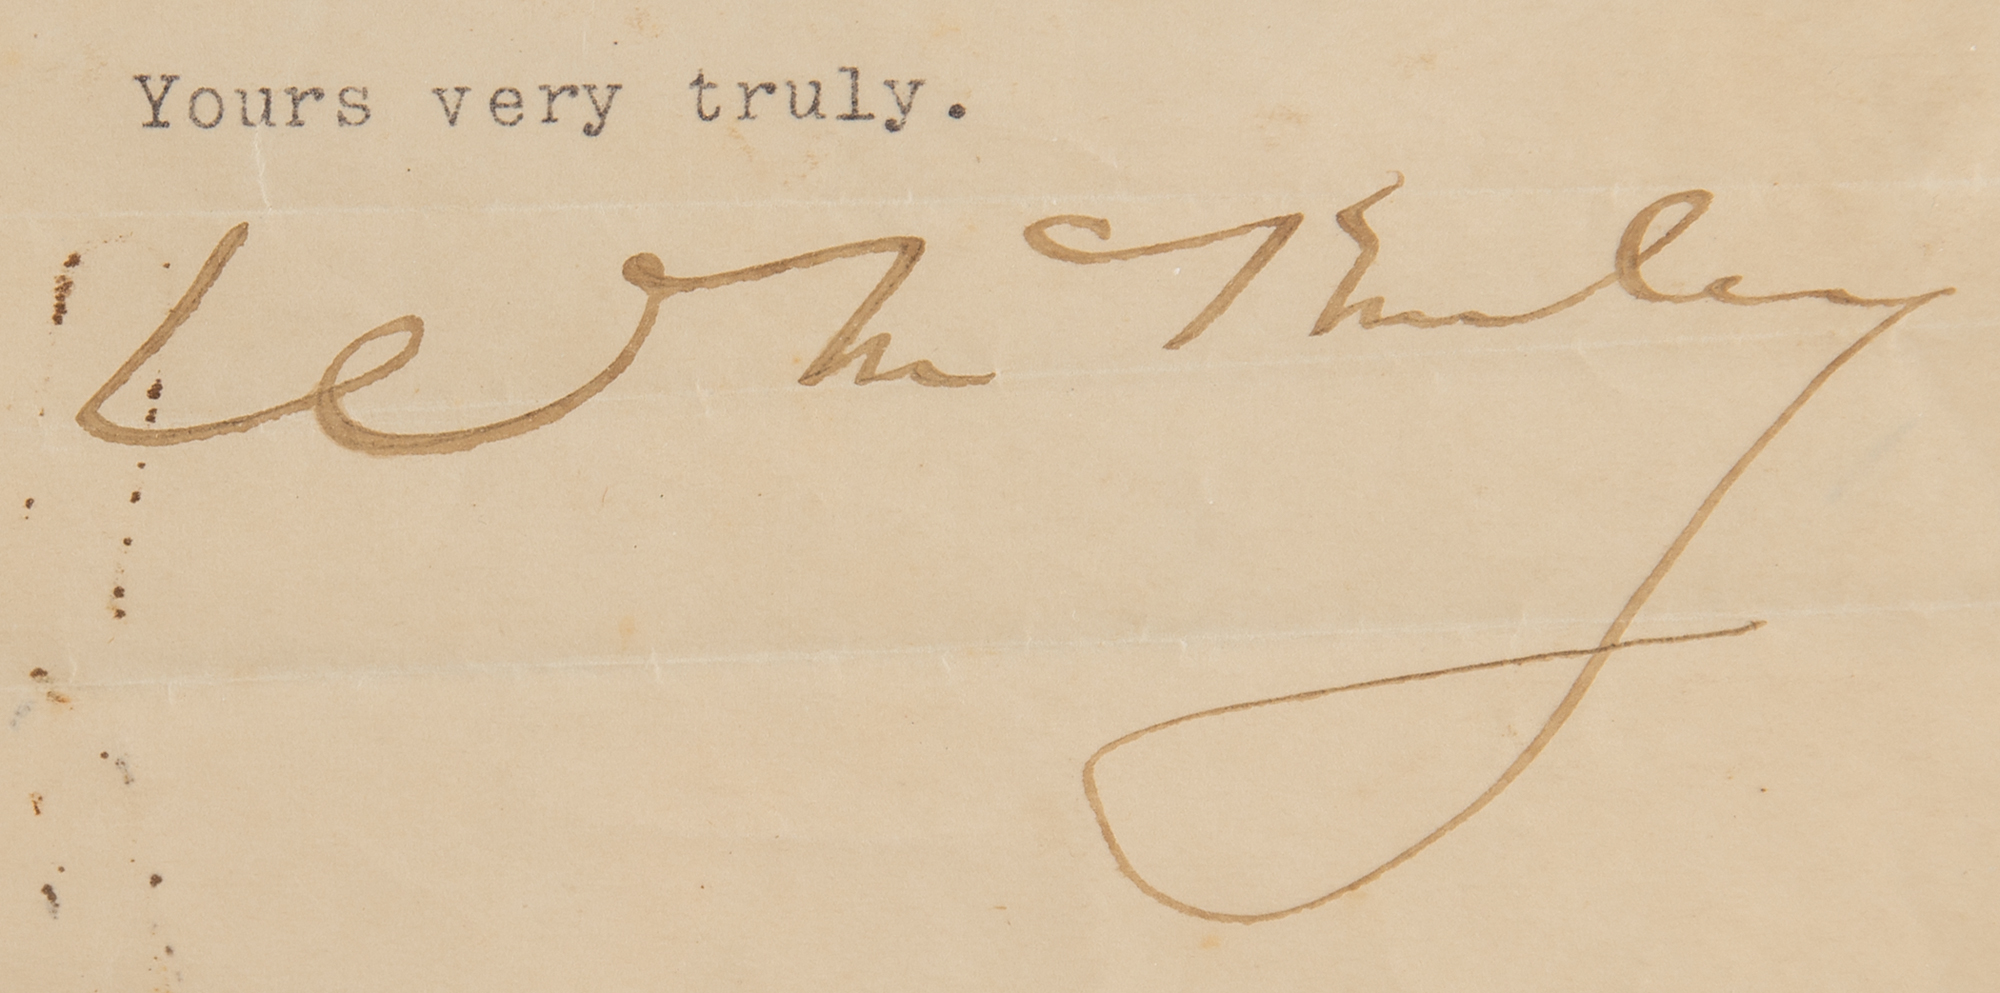 Yours very truly.
Wm McKinley